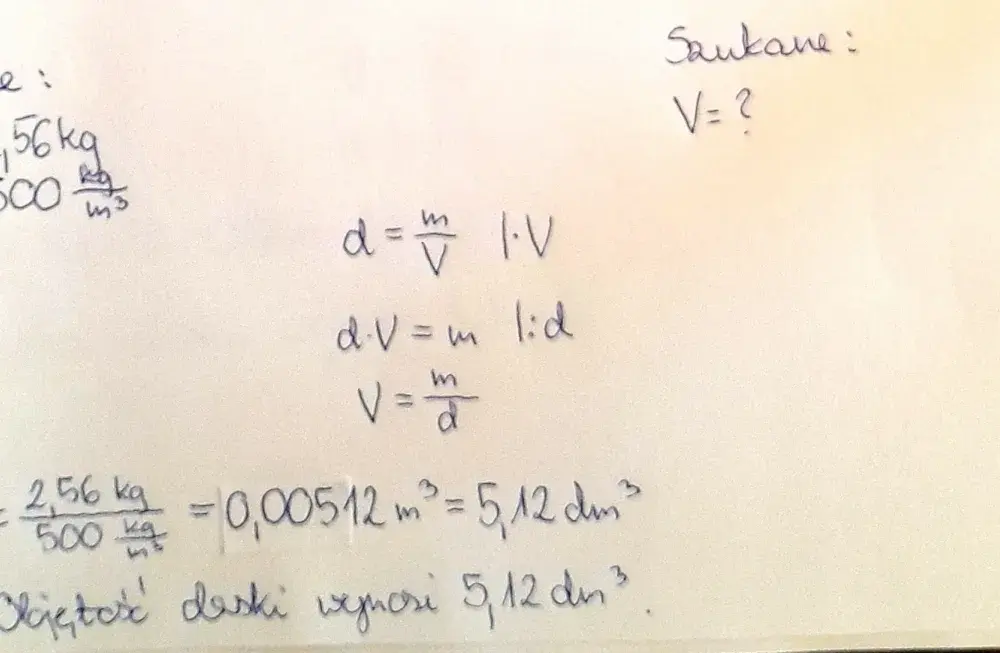 Szukane:
e:
V = ?
,56 kg
500 kg/m³
d = m/V |·V
d·V = m |:d
V = m/d
= 2,56 kg / 500 kg/m³ = 0,00512 m³ = 5,12 dm³
Objętość deski wynosi 5,12 dm³.